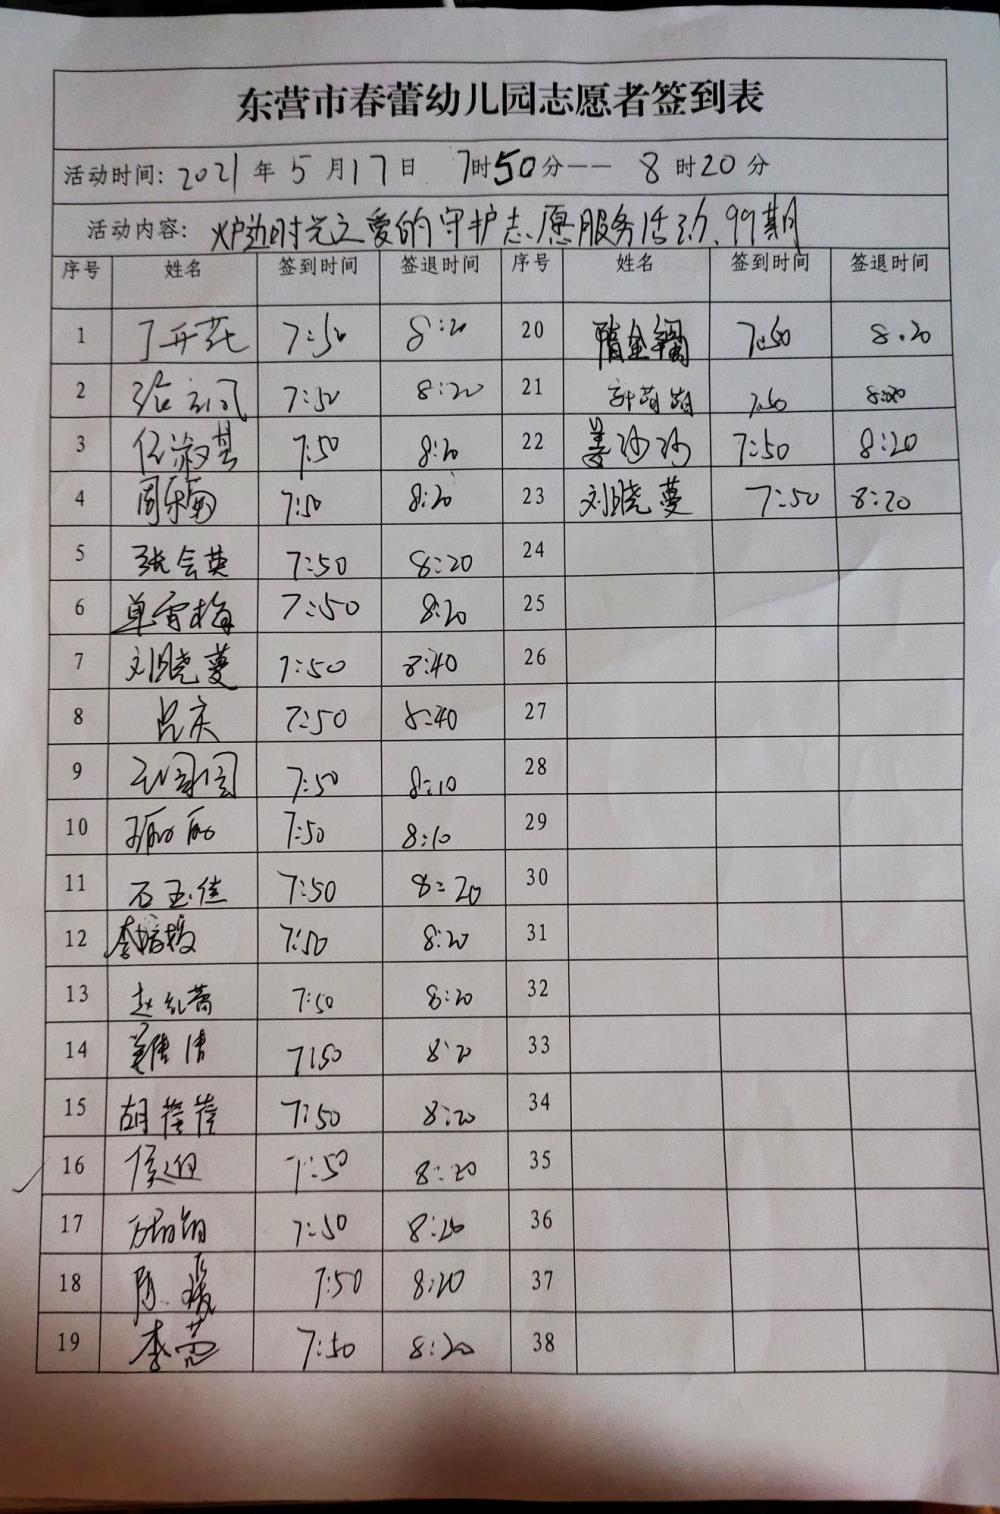 东营市春蕾幼儿园志愿者签到表
活动时间: 2021 年 5 月 17 日 7时50分—— 8时20分
活动内容: 时光之爱的守护志愿服务活动、99期
序号 姓名 签到时间 签退时间 序号 姓名 签到时间 签退时间
1 丁开花 7:50 8:20 20 隋金 7:50 8:20
2 7:50 8:20 21 7:50 8:20
3 任淑芸 7:50 8:20 22 姜沙沙 7:50 8:20
4 周 7:50 8:20 23 刘晓蔓 7:50 8:20
5 张会英 7:50 8:20 24
6 单雪梅 7:50 8:20 25
7 刘晓蔓 7:50 8:40 26
8 吕庆 7:50 8:40 27
9 7:50 8:10 28
10 7:50 8:10 29
11 石玉佳 7:50 8:20 30
12 李 7:50 8:20 31
13 赵红蕾 7:50 8:20 32
14 7:50 8:20 33
15 胡蓓蓓 7:50 8:20 34
16 侯迎 7:50 8:20 35
17 7:50 8:20 36
18 陈媛 7:50 8:20 37
19 李蕊 7:50 8:20 38